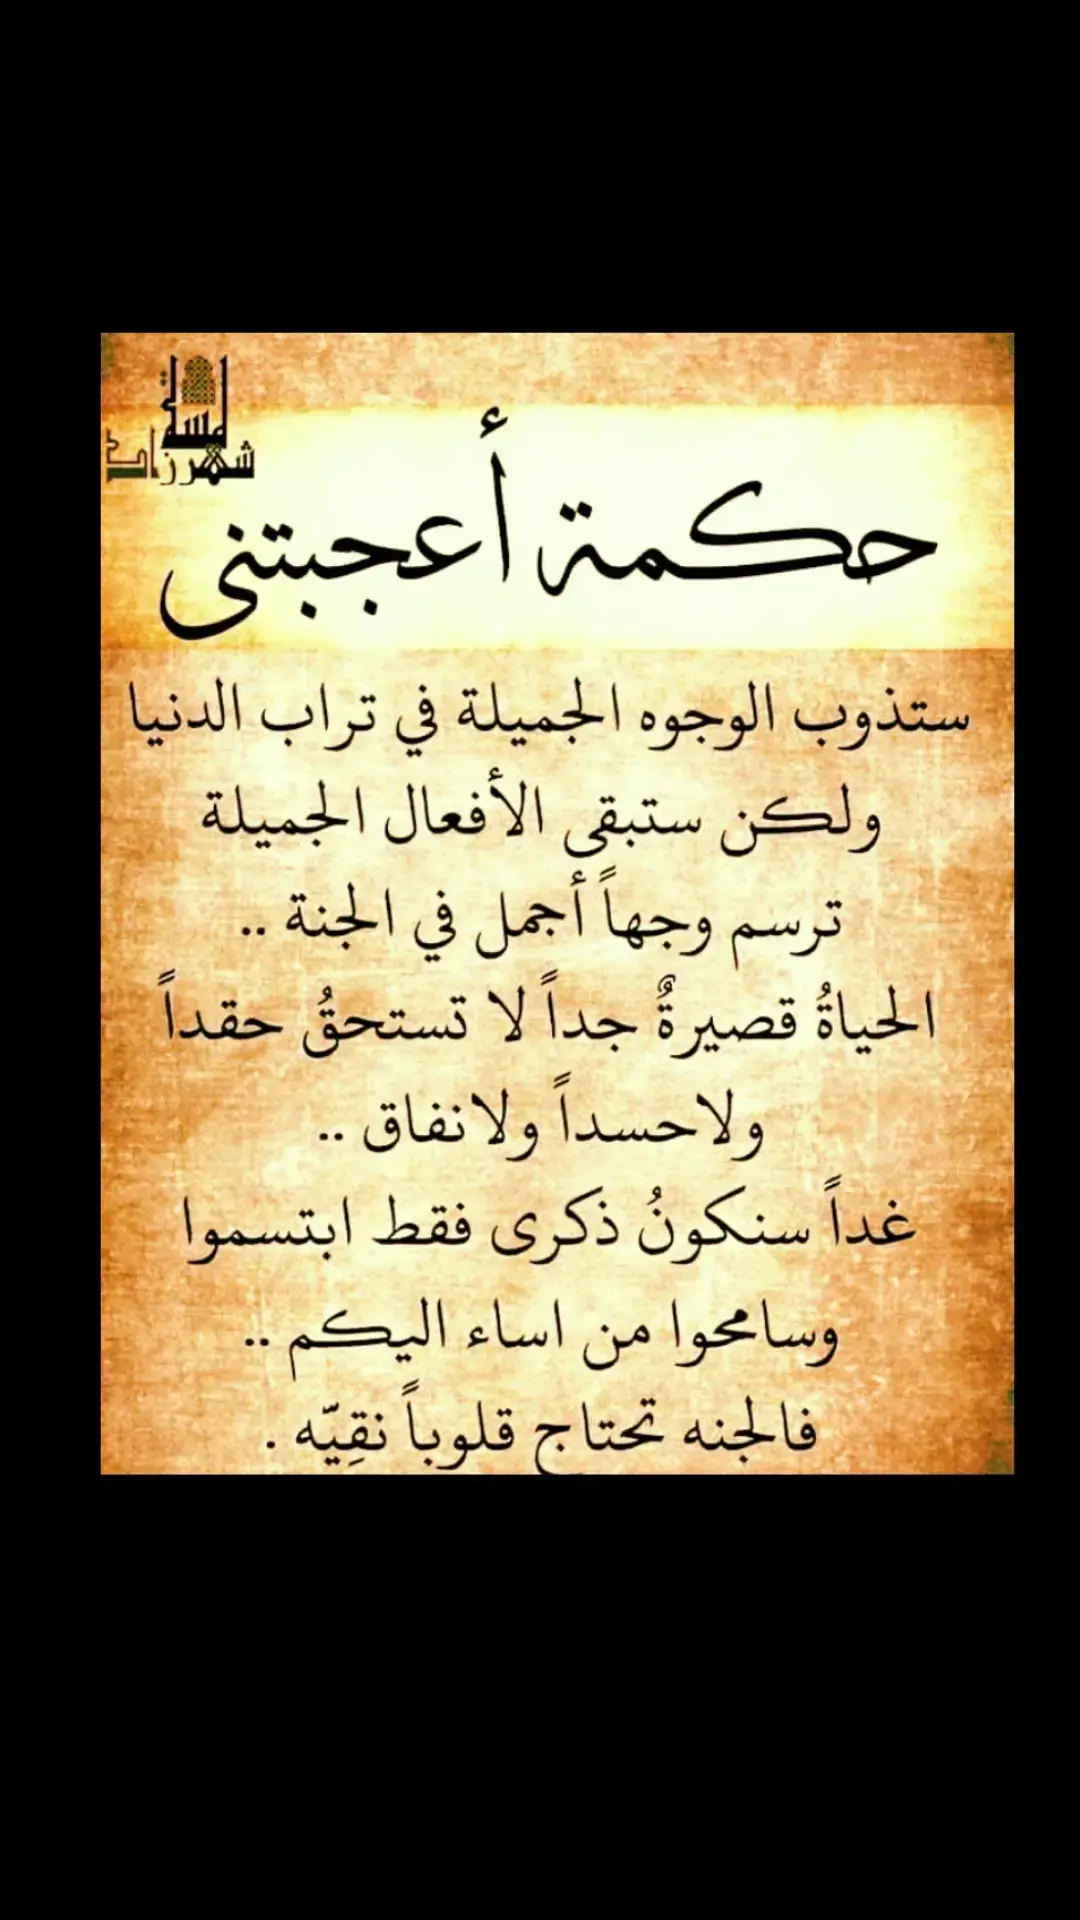 لمسة
شهرزاد
حكمة أعجبتني
ستذوب الوجوه الجميلة في تراب الدنيا
ولكن ستبقى الأفعال الجميلة
ترسم وجهاً أجمل في الجنة ..
الحياةُ قصيرةٌ جداً لا تستحقُ حقداً
ولاحسداً ولانفاق ..
غداً سنكونُ ذكرى فقط ابتسموا
وسامحوا من اساء اليكم ..
فالجنه تحتاج قلوباً نقِيّه .